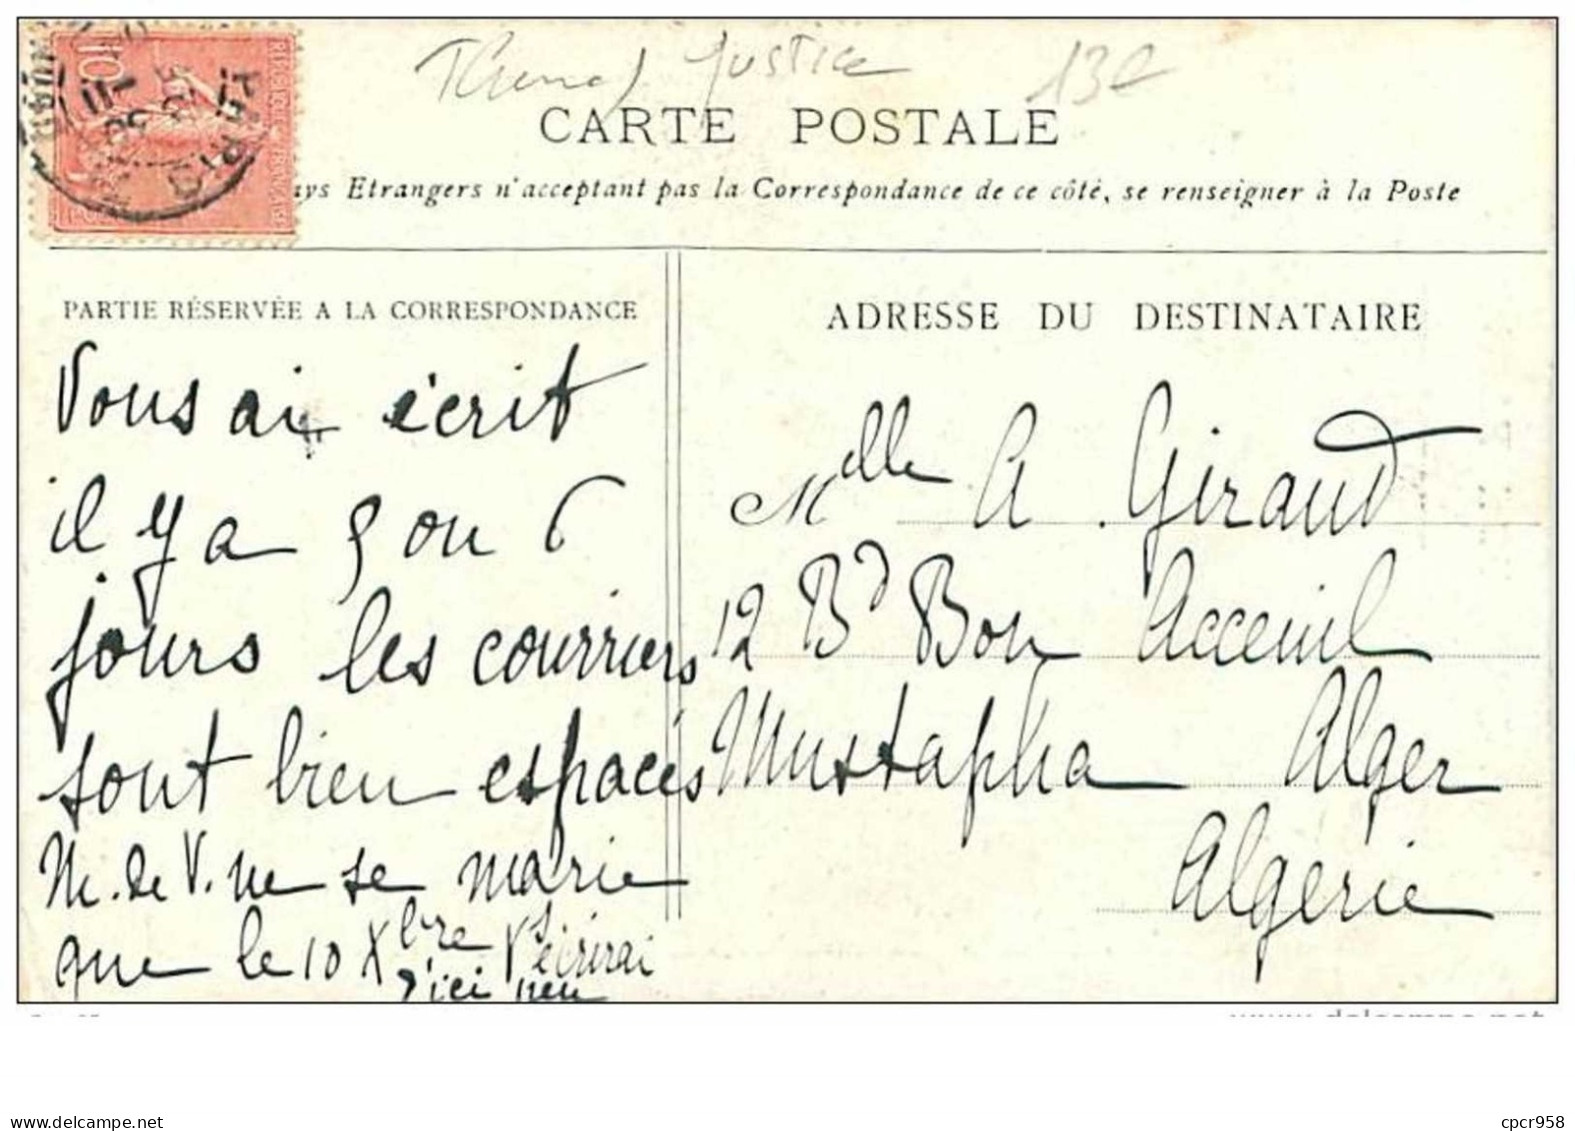 Justice 13e
CARTE POSTALE
ays Etrangers n'acceptant pas la Correspondance de ce côté, se renseigner à la Poste
PARTIE RÉSERVÉE A LA CORRESPONDANCE
Vous ai écrit
il y a 5 ou 6
jours les courriers
sont bien espacés
M. de V. ne se marie
que le 10 Xbre Vs écrirai
d'ici peu
ADRESSE DU DESTINATAIRE
Mlle A. Giraud
12 Bd Bon Acceuil
Mustapha Alger
Algérie
10
PARIS
www.delcampe.net
mercredi 10 mai 2023
cpcr958